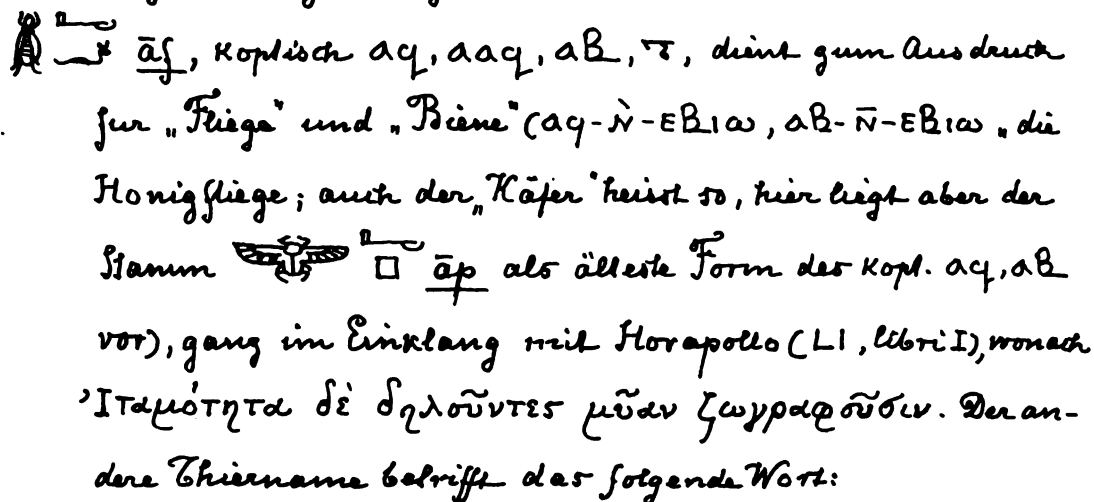 āf, koptisch ⲁϥ, ⲁⲁϥ, ⲁⲃ, ⲧ, dient zum Ausdruck
für „Fliege" und „Biene" (ⲁϥ-ⲛ̀-ⲉⲃⲓⲱ, ⲁⲃ-ⲛ̄-ⲉⲃⲓⲱ „die
Honigfliege; auch der „Käfer" heisst so, hier liegt aber der
Stamm āp als älteste Form des kopt. ⲁϥ, ⲁⲃ
vor), ganz im Einklang mit Horapollo (LI, libri I), wonach
Ἰταμότητα δὲ δηλοῦντες μῦαν ζωγραφοῦσιν. Der an-
dere Thiername betrifft das folgende Wort: